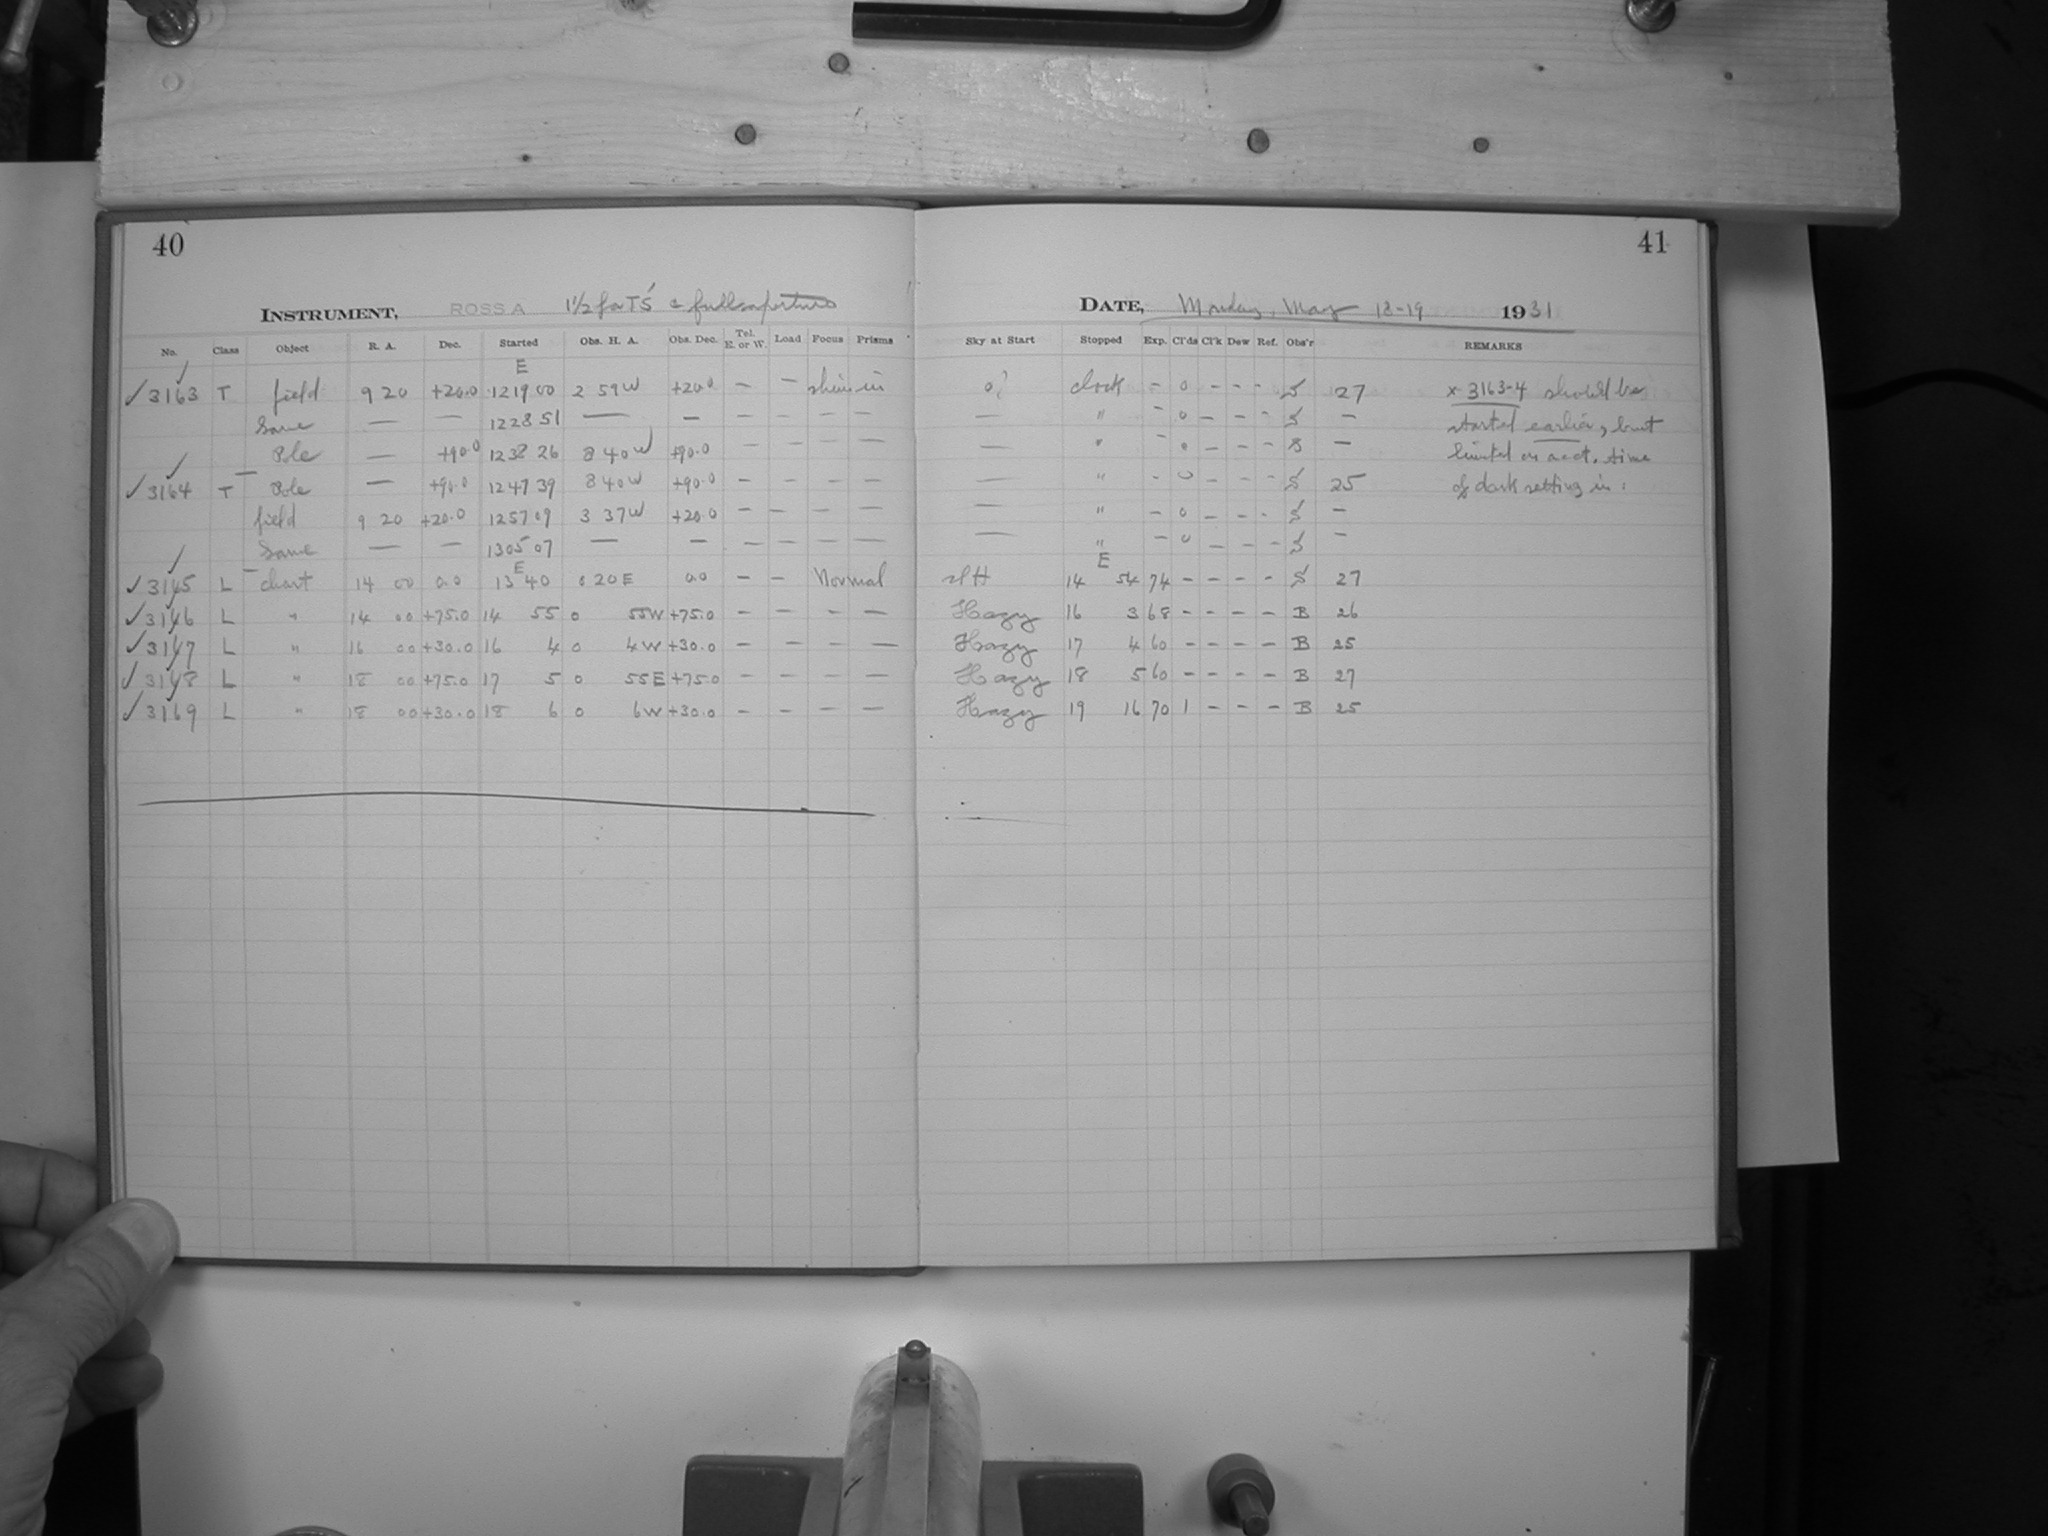 40
INSTRUMENT, ROSS A 1 1/2 for T's & full aperture
No. Class Object R. A. Dec. Started Obs. H. A. Obs. Dec. Tel. E. or W. Load Focus Prisms
E
✓3163 T field 9 20 +20.0 12 19 00 2 59 W +20.0 — — shim in
Same — — 12 28 51 — — — — — —
Pole — +90.0 12 38 26 8 40 W +90.0 — — — —
✓3164 T Pole — +90.0 12 47 39 8 40 W +90.0 — — — —
field 9 20 +20.0 12 57 09 3 37 W +20.0 — — — —
Same — — 13 05 07 — — — — — —
E
✓3165 L chart 14 00 0.0 13 40 0 20 E 0.0 — — Normal
✓3166 L " 14 00 +75.0 14 55 0 55 W +75.0 — — — —
✓3167 L " 16 00 +30.0 16 4 0 4 W +30.0 — — — —
✓3168 L " 18 00 +75.0 17 5 0 55 E +75.0 — — — —
✓3169 L " 18 00 +30.0 18 6 0 6 W +30.0 — — — —
41
DATE, Monday, May 18-19 1931
Sky at Start Stopped Exp. Cl'ds Cl'k Dew Ref. Obs'r REMARKS
0? clock - 0 - - - S 27 x 3163-4 should be
— " - 0 - - - S — started earlier, but
— " - 0 - - - S — limited on acct. time
— " - 0 - - - S 25 of dark setting in:
— " - 0 - - - S —
— " - 0 - - - S —
E
sl H 14 54 74 - - - - S 27
Hazy 16 3 68 - - - - B 26
Hazy 17 4 60 - - - - B 25
Hazy 18 5 60 - - - - B 27
Hazy 19 16 70 1 - - - B 25